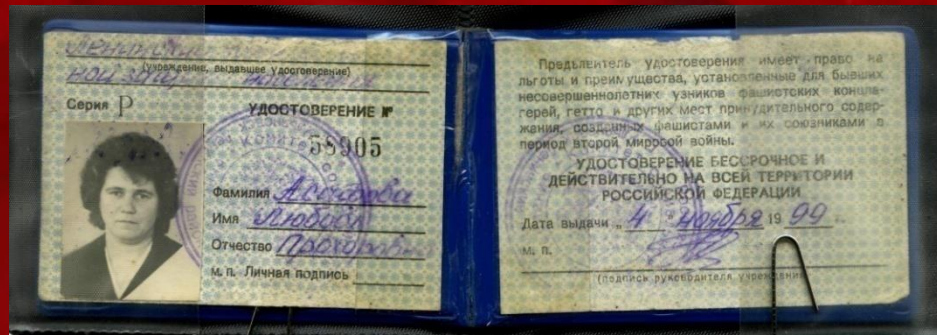 (учреждение, выдавшее удостоверение)
Серия Р
УДОСТОВЕРЕНИЕ №
58905
Фамилия
Имя Любовь
Отчество
м. п. Личная подпись
Предъявитель удостоверения имеет право на
льготы и преимущества, установленные для бывших
несовершеннолетних узников фашистских концла-
герей, гетто и других мест принудительного содер-
жания, созданных фашистами и их союзниками в
период второй мировой войны.
УДОСТОВЕРЕНИЕ БЕССРОЧНОЕ И
ДЕЙСТВИТЕЛЬНО НА ВСЕЙ ТЕРРИТОРИИ
РОССИЙСКОЙ ФЕДЕРАЦИИ
Дата выдачи „ 4 " ноября 1999
м. п.
(подпись руководителя учреждения)